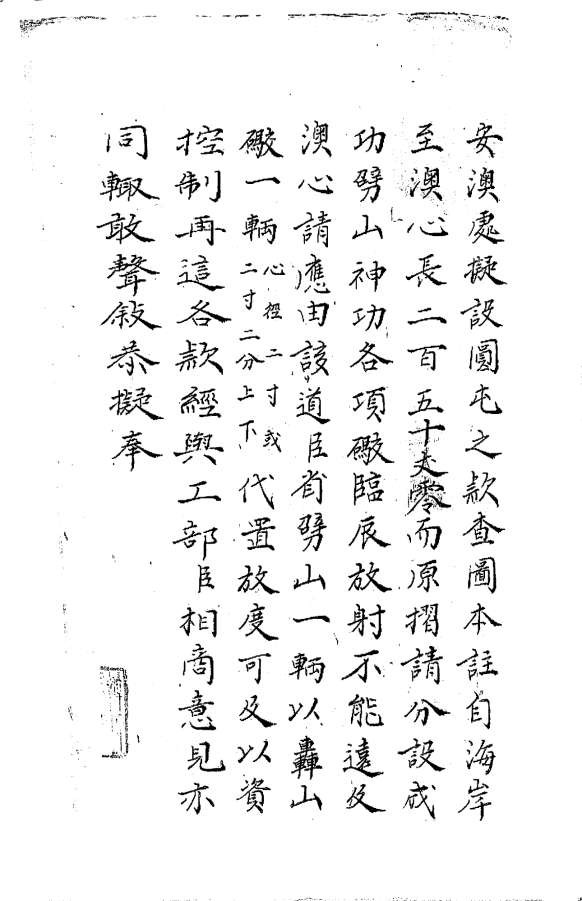 安澳處擬設圓屯之款查圖本註自海岸
至澳心長二百五十丈零而原摺請分設成
功劈山神功各項礮臨辰放射不能遠及
澳心請應由該道臣省劈山一輌以轟山
礮一輌心徑二寸或二寸二分上下代置放度可及以資
控制再這各款經與工部臣相啇意見亦
同輙敢聲敍恭擬奉